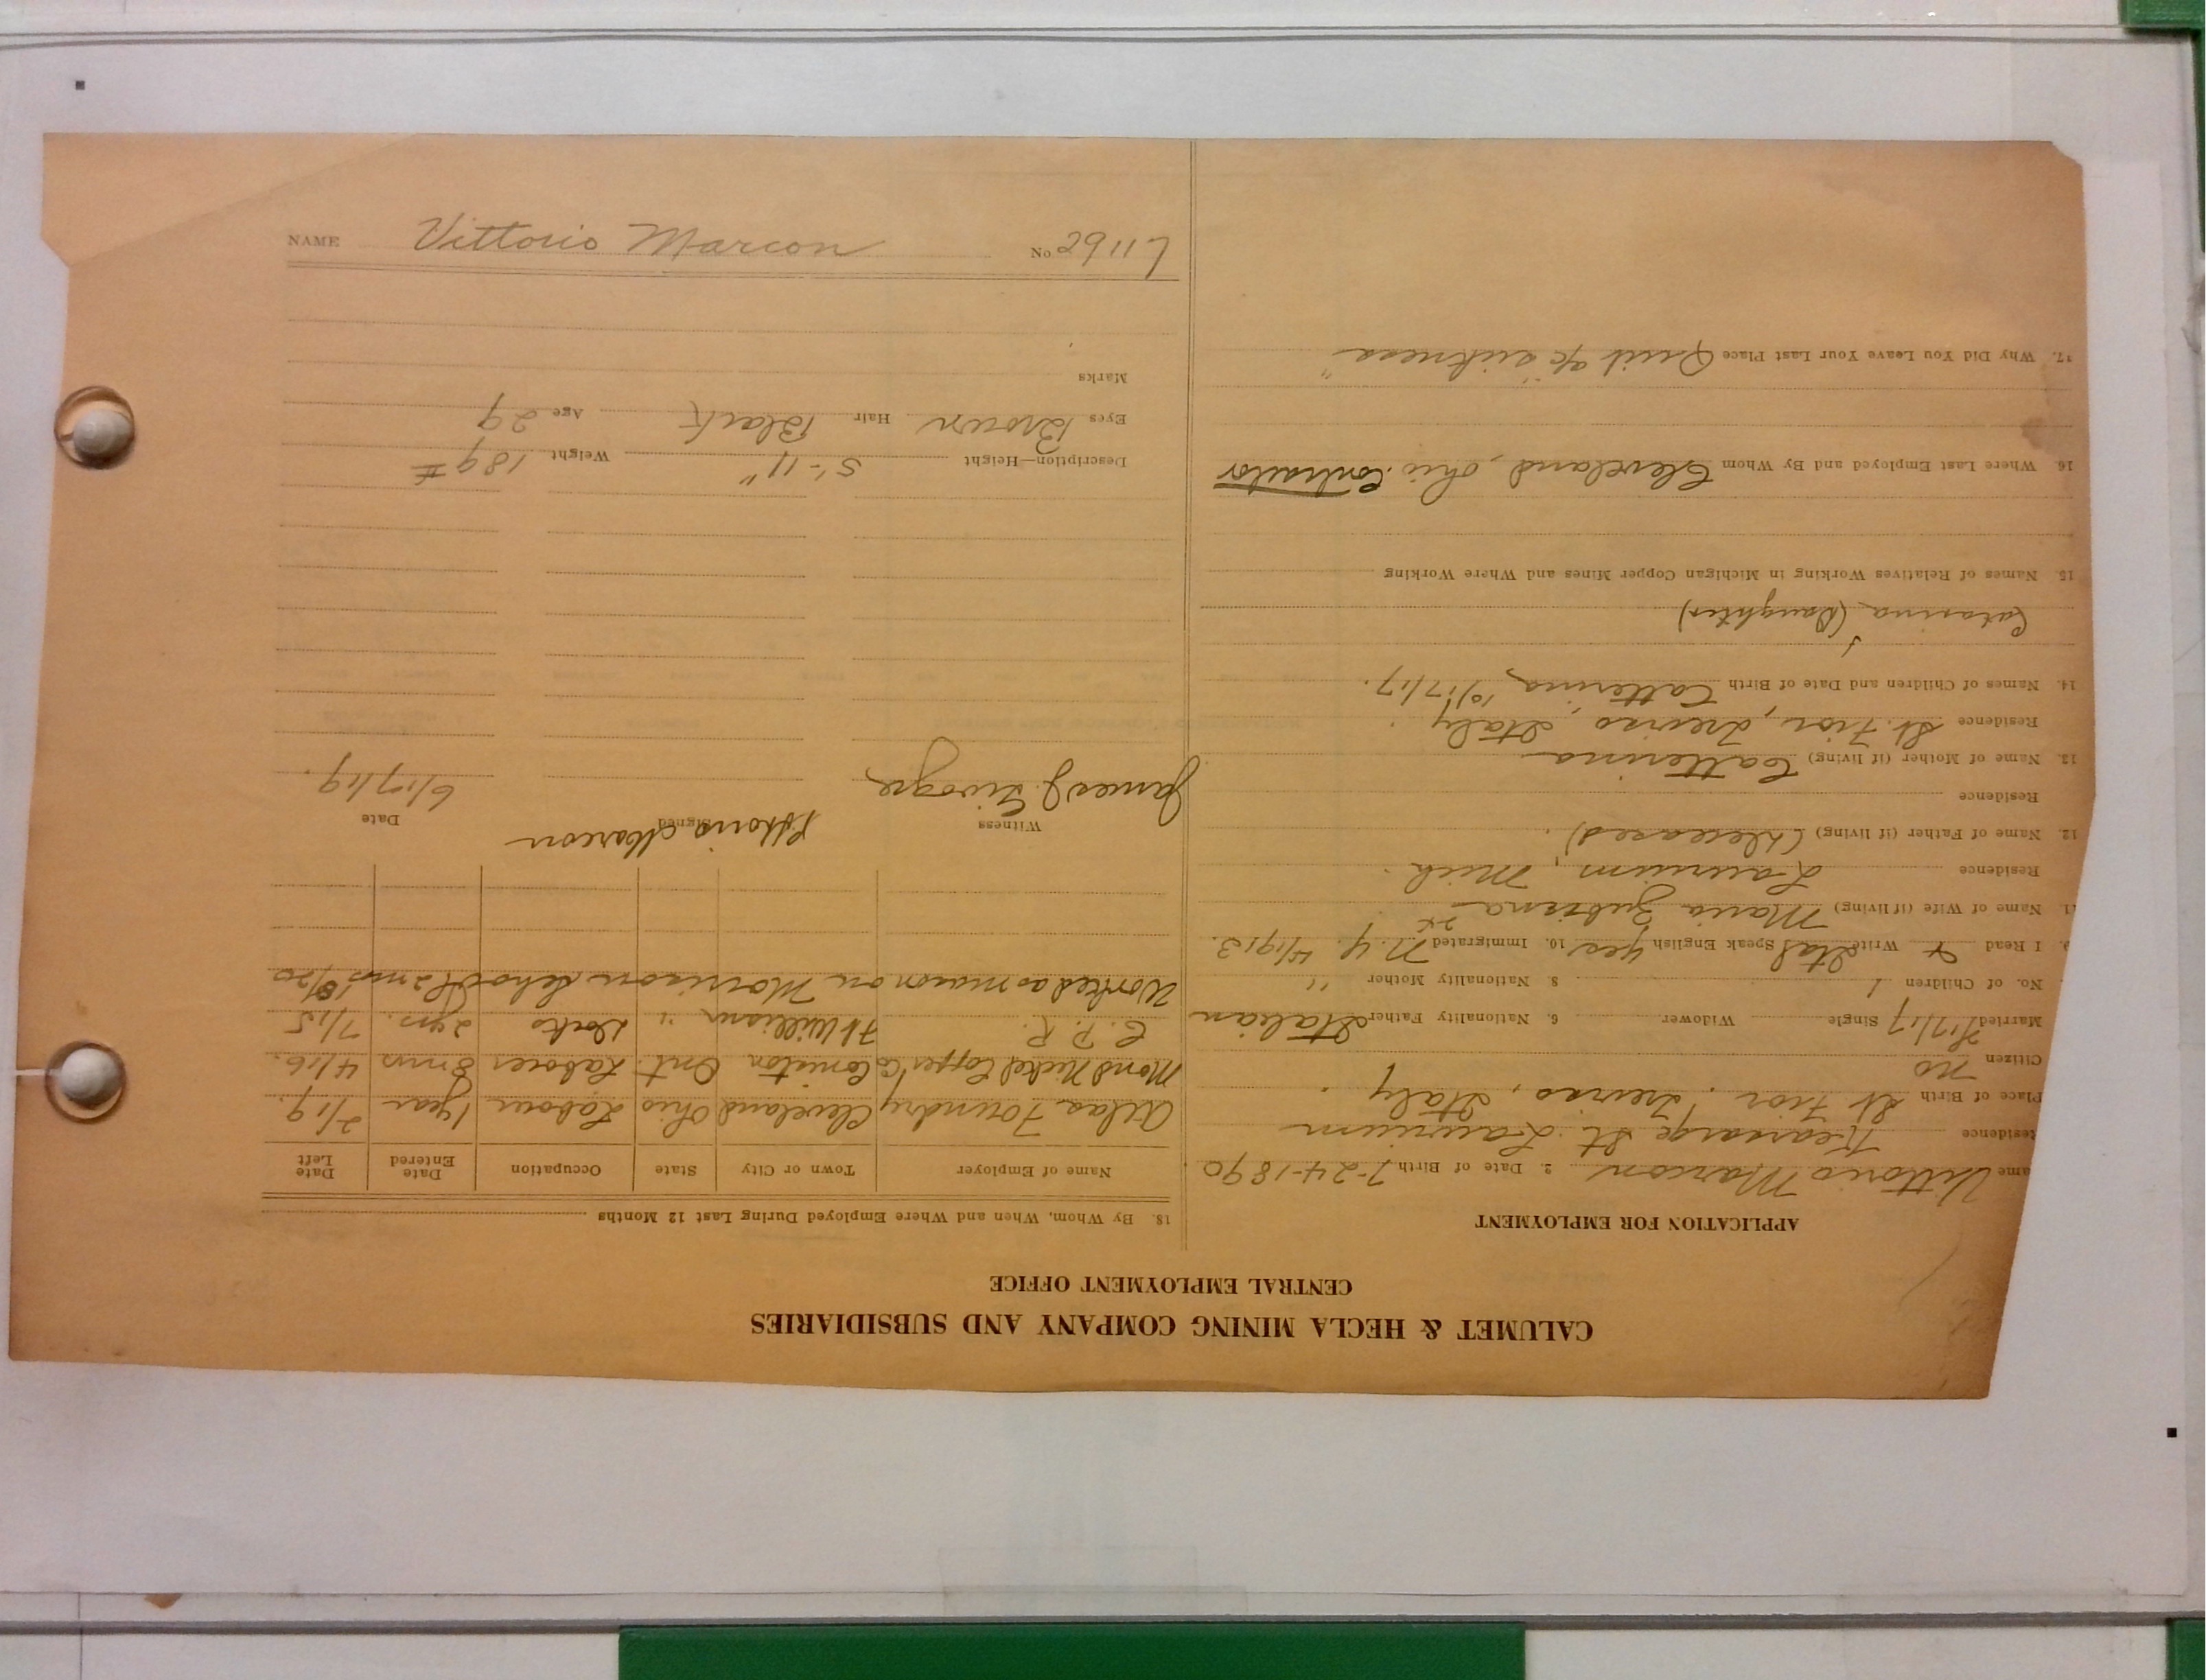 CALUMET & HECLA MINING COMPANY AND SUBSIDIARIES
CENTRAL EMPLOYMENT OFFICE
APPLICATION FOR EMPLOYMENT
ame Vittorio Marcon 2. Date of Birth 7-24-1890
esidence Kearsarge St. Laurium
Place of Birth St. Fior, Treviso, Italy.
Citizen no
Married 7/17 Single Widower 6. Nationality Father Italian
No. of Children 1 8. Nationality Mother "
9. I Read Write Ital Speak English yes 10. Immigrated N.Y. 4/1913.
11. Name of Wife (if living) Maria
Residence Laurium, Mich.
12. Name of Father (if living) (deceased).
Residence
13. Name of Mother (if living) Catterina
Residence St. Fior, Treviso, Italy.
14. Names of Children and Date of Birth Catterina, 10/17/17.
Catarina (Daughter)
15. Names of Relatives Working in Michigan Copper Mines and Where Working
16. Where Last Employed and By Whom Cleveland, Ohio. Contractor
17. Why Did You Leave Your Last Place Quit a/c "sickness"
18. By Whom, When and Where Employed During Last 12 Months
Name of Employer Town or City State Occupation Date Entered Date Left
Atlas Foundry Cleveland Ohio Labour 1 year 2/19.
Mond Nickel Copper Co Coniston Ont. Laborer 8 mos 4/16.
C. P. R. Ft William " Docks 2 yrs. 7/15
Worked as mason on Morrison School 2 mos 10/20
Witness Signed Date
James J. Vittorio Marcon 6/17/19.
Description—Height 5'-11" Weight 189 #
Eyes Brown Hair Black Age 29
Marks
NAME Vittorio Marcon No 29117